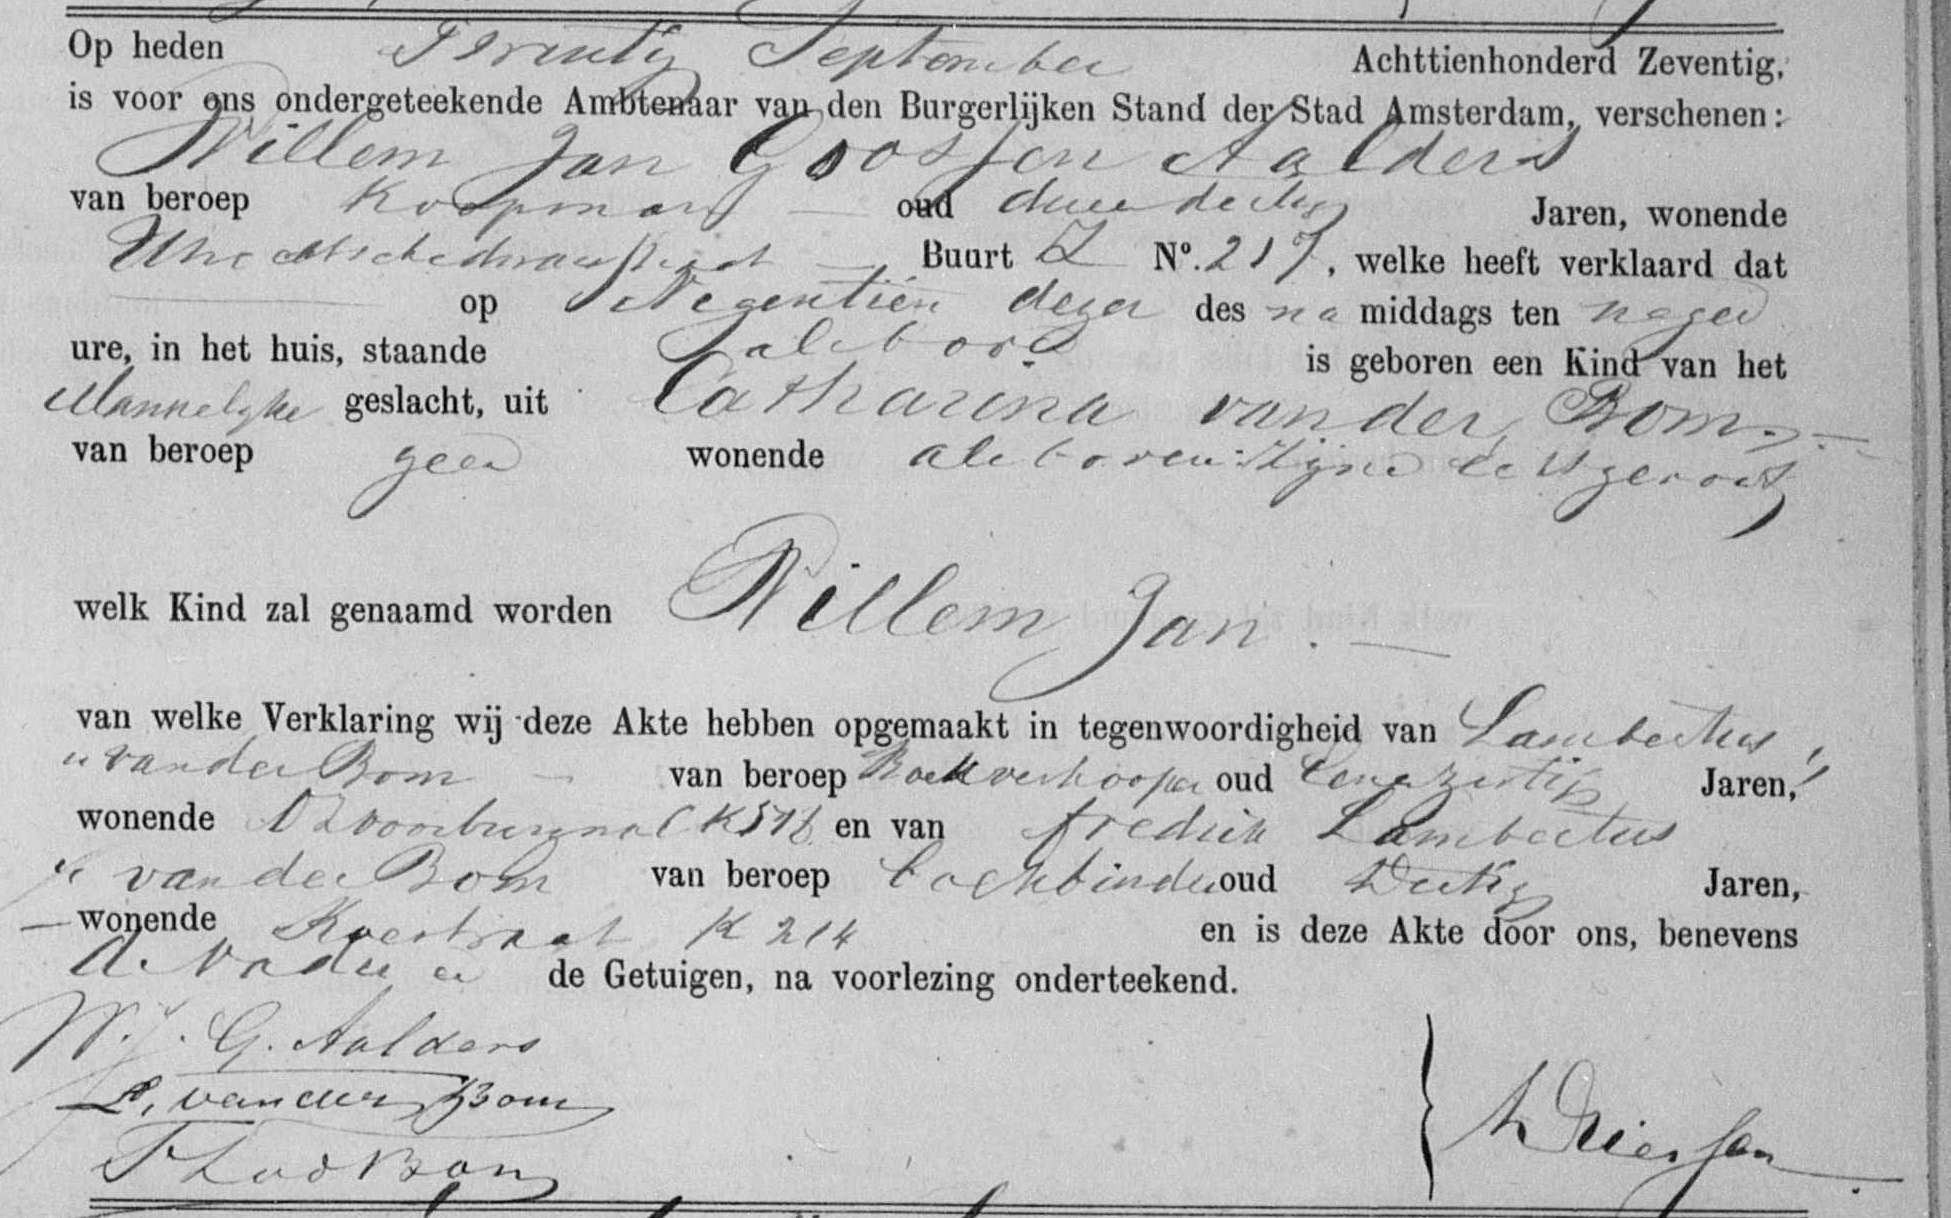 Op heden Twintig September Achttienhonderd Zeventig,
is voor ons ondergeteekende Ambtenaar van den Burgerlijken Stand der Stad Amsterdam, verschenen:
Willem Jan Goossen Aalders
van beroep Koopman oud Jaren, wonende
Utrechtschedwarsstraat Buurt Z No. 217, welke heeft verklaard dat
op Negentien dezer des na middags ten negen
ure, in het huis, staande als boven is geboren een Kind van het
Mannelyke geslacht, uit Catharina van der Bom,
van beroep geen wonende als boven zijne echtgenoot
welk Kind zal genaamd worden Willem Jan.
van welke Verklaring wij deze Akte hebben opgemaakt in tegenwoordigheid van Lambertus
van der Bom van beroep Boekverkooper oud Eenezestig Jaren,
wonende OZvoorburgwal K en van Fredrik Lambertus
van der Bom van beroep Boekbinder oud Dertig Jaren,
wonende Koestraat K 214 en is deze Akte door ons, benevens
de Vader en de Getuigen, na voorlezing onderteekend.
W. J. G. Aalders
L. van der Bom
F Lod Bom
Driessen